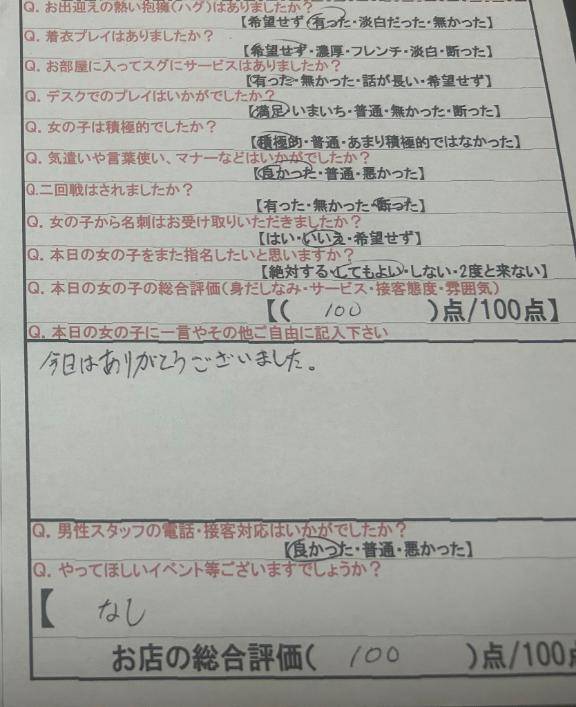 Q. お出迎えの熱い抱擁(ハグ)はありましたか?
【希望せず・有った・淡白だった・無かった】
Q. 着衣プレイはありましたか?
【希望せず・濃厚・フレンチ・淡白・断った】
Q. お部屋に入ってスグにサービスはありましたか?
【有った・無かった・話が長い・希望せず】
Q. デスクでのプレイはいかがでしたか?
【満足・いまいち・普通・無かった・断った】
Q. 女の子は積極的でしたか?
【積極的・普通・あまり積極的ではなかった】
Q. 気遣いや言葉使い、マナーなどはいかがでしたか?
【良かった・普通・悪かった】
Q.二回戦はされましたか?
【有った・無かった・断った】
Q. 女の子から名刺はお受け取りいただきましたか?
【はい・いいえ・希望せず】
Q. 本日の女の子をまた指名したいと思いますか?
【絶対する・してもよい・しない・2度と来ない】
Q. 本日の女の子の総合評価(身だしなみ・サービス・接客態度・雰囲気)
【( 100 )点/100点】
Q. 本日の女の子に一言やその他ご自由に記入下さい
今日はありがとうございました。
Q. 男性スタッフの電話・接客対応はいかがでしたか?
【良かった・普通・悪かった】
Q. やってほしいイベント等ございますでしょうか?
【 なし
お店の総合評価( 100 )点/100点